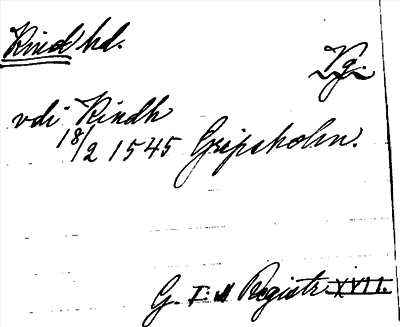 Kind hd.
Vg.
vdi Kindh
18/2 1545 Gripsholm.
G. I:s Registr. XVII.